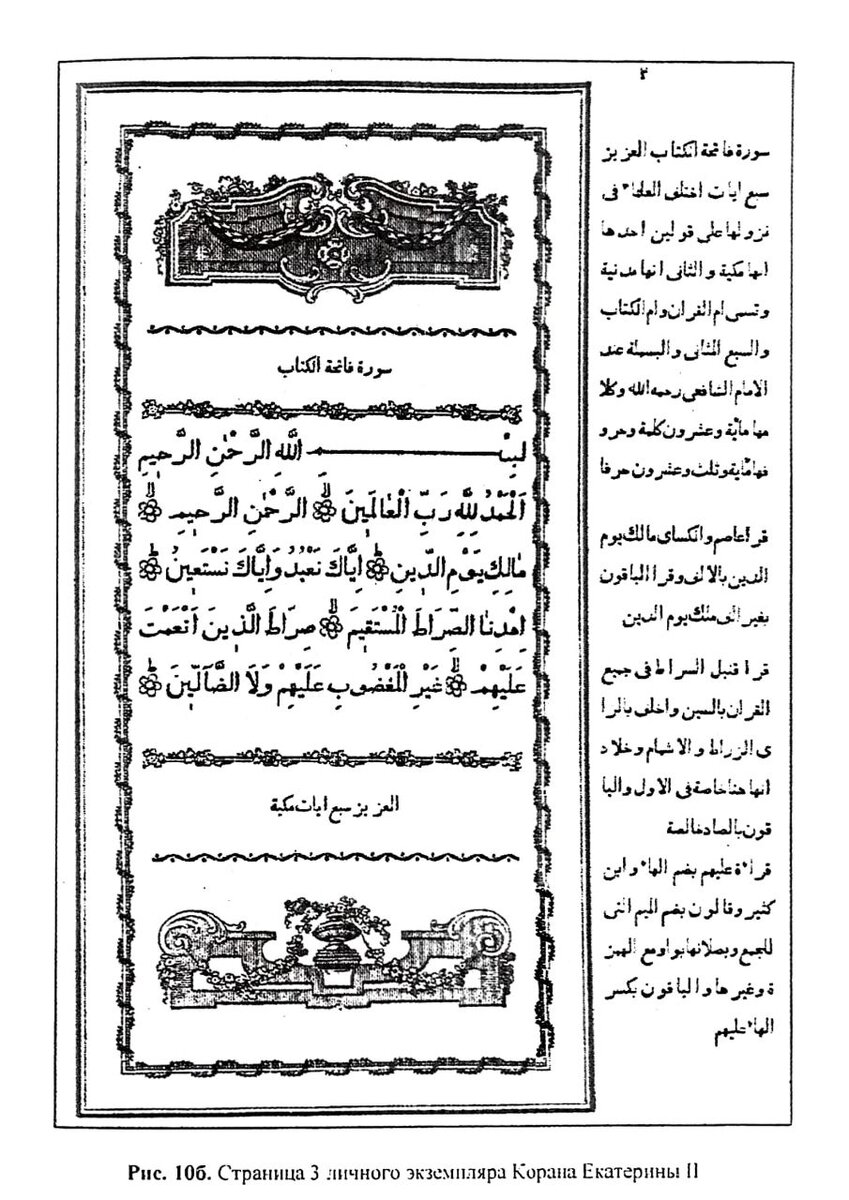 ٣
سورة فاتحة الكتاب
بسم الله الرَّحْمٰنِ الرَّحِيمِ
اَلْحَمْدُ لِلّٰهِ رَبِّ الْعَالَمِينَ الرَّحْمٰنِ الرَّحِيمِ
مَالِكِ يَوْمِ الدِّينِ اِيَّاكَ نَعْبُدُ وَاِيَّاكَ نَسْتَعِينُ
اِهْدِنَا الصِّرَاطَ الْمُسْتَقِيمَ صِرَاطَ الَّذِينَ اَنْعَمْتَ
عَلَيْهِمْ غَيْرِ الْمَغْضُوبِ عَلَيْهِمْ وَلَا الضَّآلِّينَ
العزيز سبع ايات مكية
سورة فاتحة الكتاب العزيز
سبع ايات اختلف العلماء فى
نزولها على قولين احدها
انها مكية و الثانى انها مدنية
و تسمى ام القران و ام الكتاب
و السبع الثانى و البسملة عند
الامام الشافعى رحمه الله وكلا
مها مائة و عشرون كلمة وحرو
فها مائة وثلث وعشرون حرفا
قرا عاصم والكساى مالك يوم
الدين بالالف وقرا الباقون
بغير الف ملك يوم الدين
قرا قنبل السراط فى جميع
القران بالسين و اخلف بالزا
ى الزراط و الاشمام وخلاد
انها هنا خاصة فى الاول والبا
قون بالصاد خالصة
قراءة عليهم بضم الهاء و ابن
كثير وقالون بضم الميم التى
للجمع وبصلانها بواو مع الهمز
ة وغيرها و الباقون بكسر
الهاء عليهم
Рис. 10б. Страница 3 личного экземпляра Корана Екатерины II